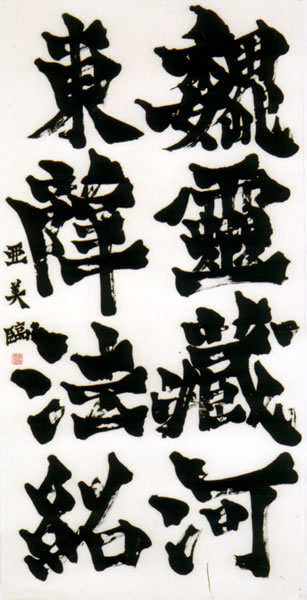 魏靈藏河
東薛法紹
亜美臨